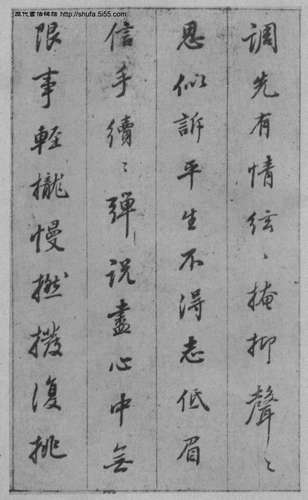 調先有情絃〻掩抑聲〻
思似訴平生不得志低眉
信手續〻彈説盡心中無
限事輕攏慢撚撥復挑
http://shufa.5i55.com